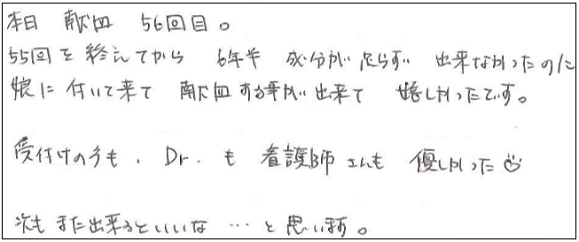 本日 献血 56回目。
55回を終えてから 6年半 成分が足らず 出来なかったのに
娘に付いて来て 献血する事が出来て 嬉しかったです。
受付けの方も、Dr.も 看護師さんも 優しかった☺
次もまた出来るといいな … と思います。